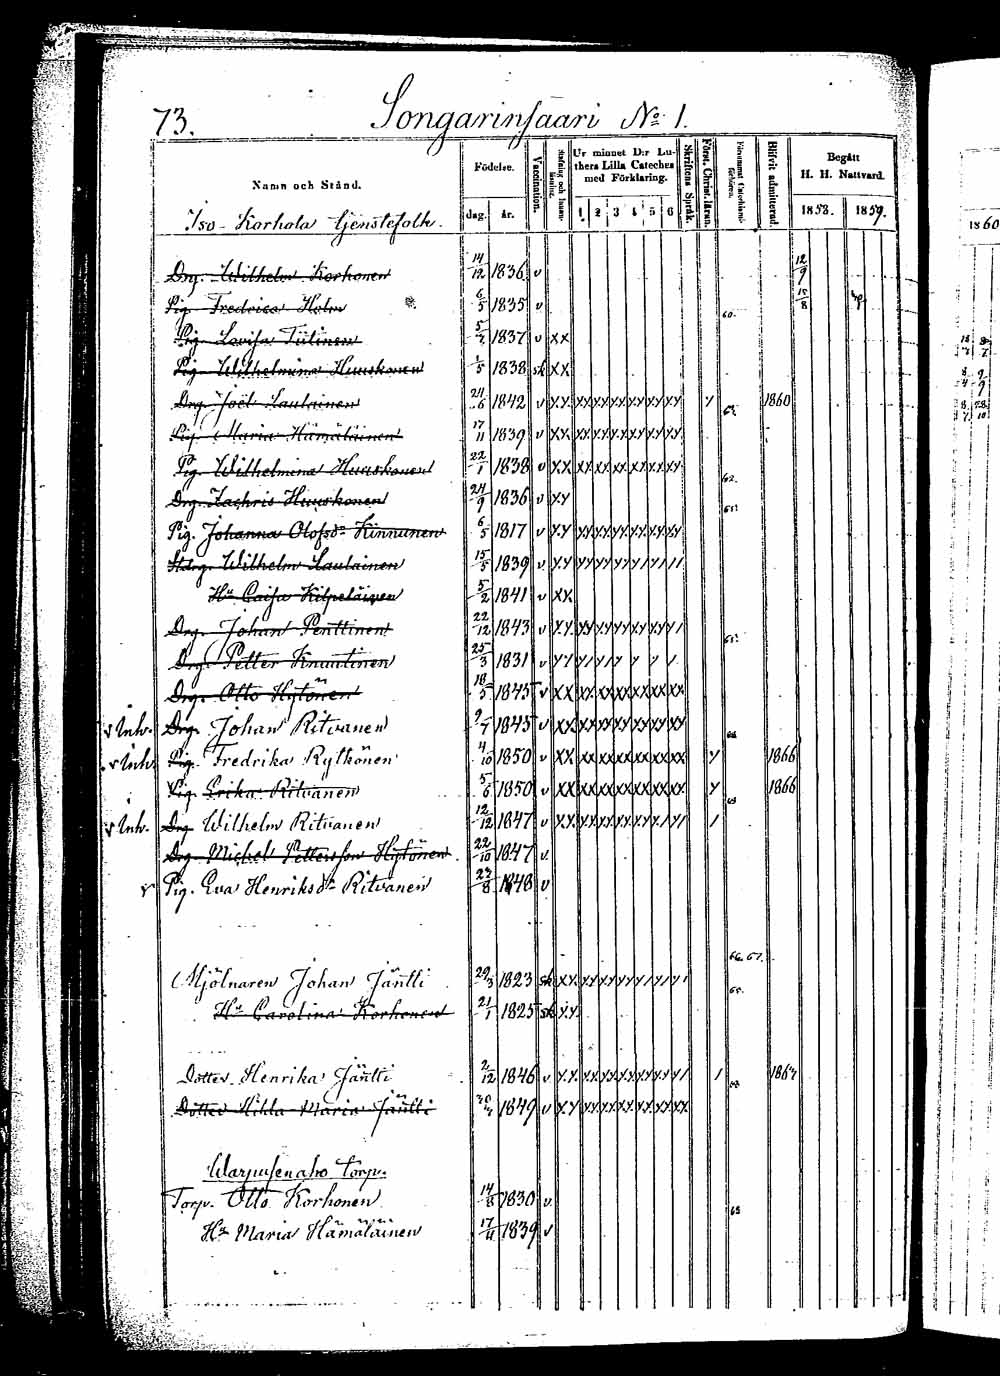 73. Songarinsaari No 1.
Namn och Stånd. Födelse. Vaccination. Stafning och Innanläsning. Ur minnet D:r Luthers Lilla Cateches med Förklaring. Skriftens Språk. Först. Christ. läran. Försummat Catechismiförhören. Blifvit admitterad. Begått H. H. Nattvard.
dag. år. 1 2 3 4 5 6 1858. 1859.
Iso-Korhola tjenstefolk. 1860
Drg. Wilhelm Korhonen 14/12 1836 v 12/9
Pig. Fredrica Holm 6/5 1835 v 15/8
60.
Pig. Lovisa Tiilinen 1837 v XX
Pig. Wilhelmina Huuskonen 1/5 1838 sk XX
Drg. Joël Laulainen 24/6 1842 v XX XX XX XX XX XX XX 1860
Pig. Maria Hämäläinen 17/11 1839 v XX XX XX XX XX XX XX
Pig. Wilhelmina Huuskonen 22/1 1838 v XX XX XX XX XX XX XX
62.
Drg. Zachris Huuskonen 24/9 1836 v XX
Pig. Johanna Olofsdr Kinnunen 6/5 1817 v XX XX XX XX XX XX XX
Wilhelm Laulainen 15/5 1839 v
Hu Caisa Kilpeläinen 5/2 1841 v XX
Drg. Johan Penttinen 22/12 1843 v
Drg. Petter Knuutinen 25/3 1831 v
Drg. Otto Hytönen 18/5 1845 v XX XX XX XX XX XX XX
v Inh. Drg. Johan Ritvanen 1845 v XX XX XX XX XX XX XX
v Inh. Pig. Fredrika Rytkönen 4/10 1850 v XX XX XX XX XX XX XX 1866
Pig. Erika Ritvanen 5/6 1850 v XX XX XX XX XX XX XX 1866
v Inh. Drg Wilhelm Ritvanen 12/12 1847 v
Drg Michel Pettersson Hytönen 22/10 1847 v
v Pig. Eva Henriksdr Ritvanen 23/8 1848 v
66. 67.
Mjölnaren Johan Jäntti 29/3 1823 sk
Hu Carolina Korhonen 21/1 1825 sk
Dotter Henrika Jäntti 2/12 1846 v
Dotter Hilda Maria Jäntti 1849 v
Warpusenaho torp.
Torp. Otto Korhonen 14/8 1830 v
Hu Maria Hämäläinen 17/11 1839 v